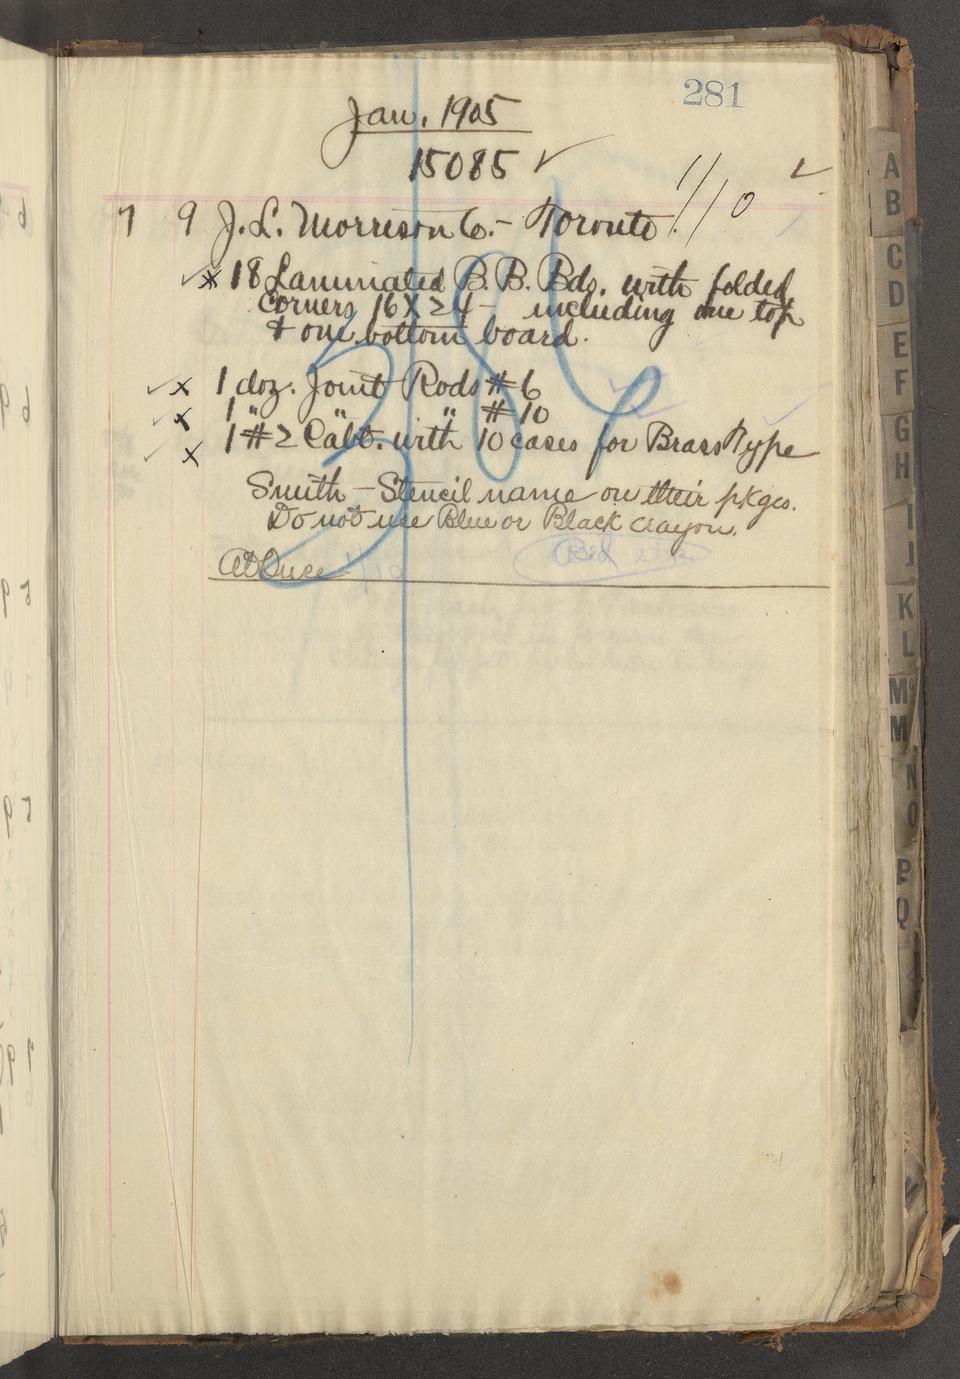 281
Jan. 1905
15085 ✓
1/10 ✓
7 9 J. L. Morrison Co. - Toronto
✓x 18 Laminated B. B. Bds. with folded
corners 16X24 - including one top
& one bottom board.
✓x 1 doz. Joint Rods #6
✓x 1 " " " #10
✓x 1 #2 Cabt. with 10 cases for Brass Type
Smith - Stencil name on their pkges.
Do not use Blue or Black crayon.
At Once 1/10
Red
A
B
C
D
E
F
G
H
I
J
K
L
Mc
M
N
O
P
Q